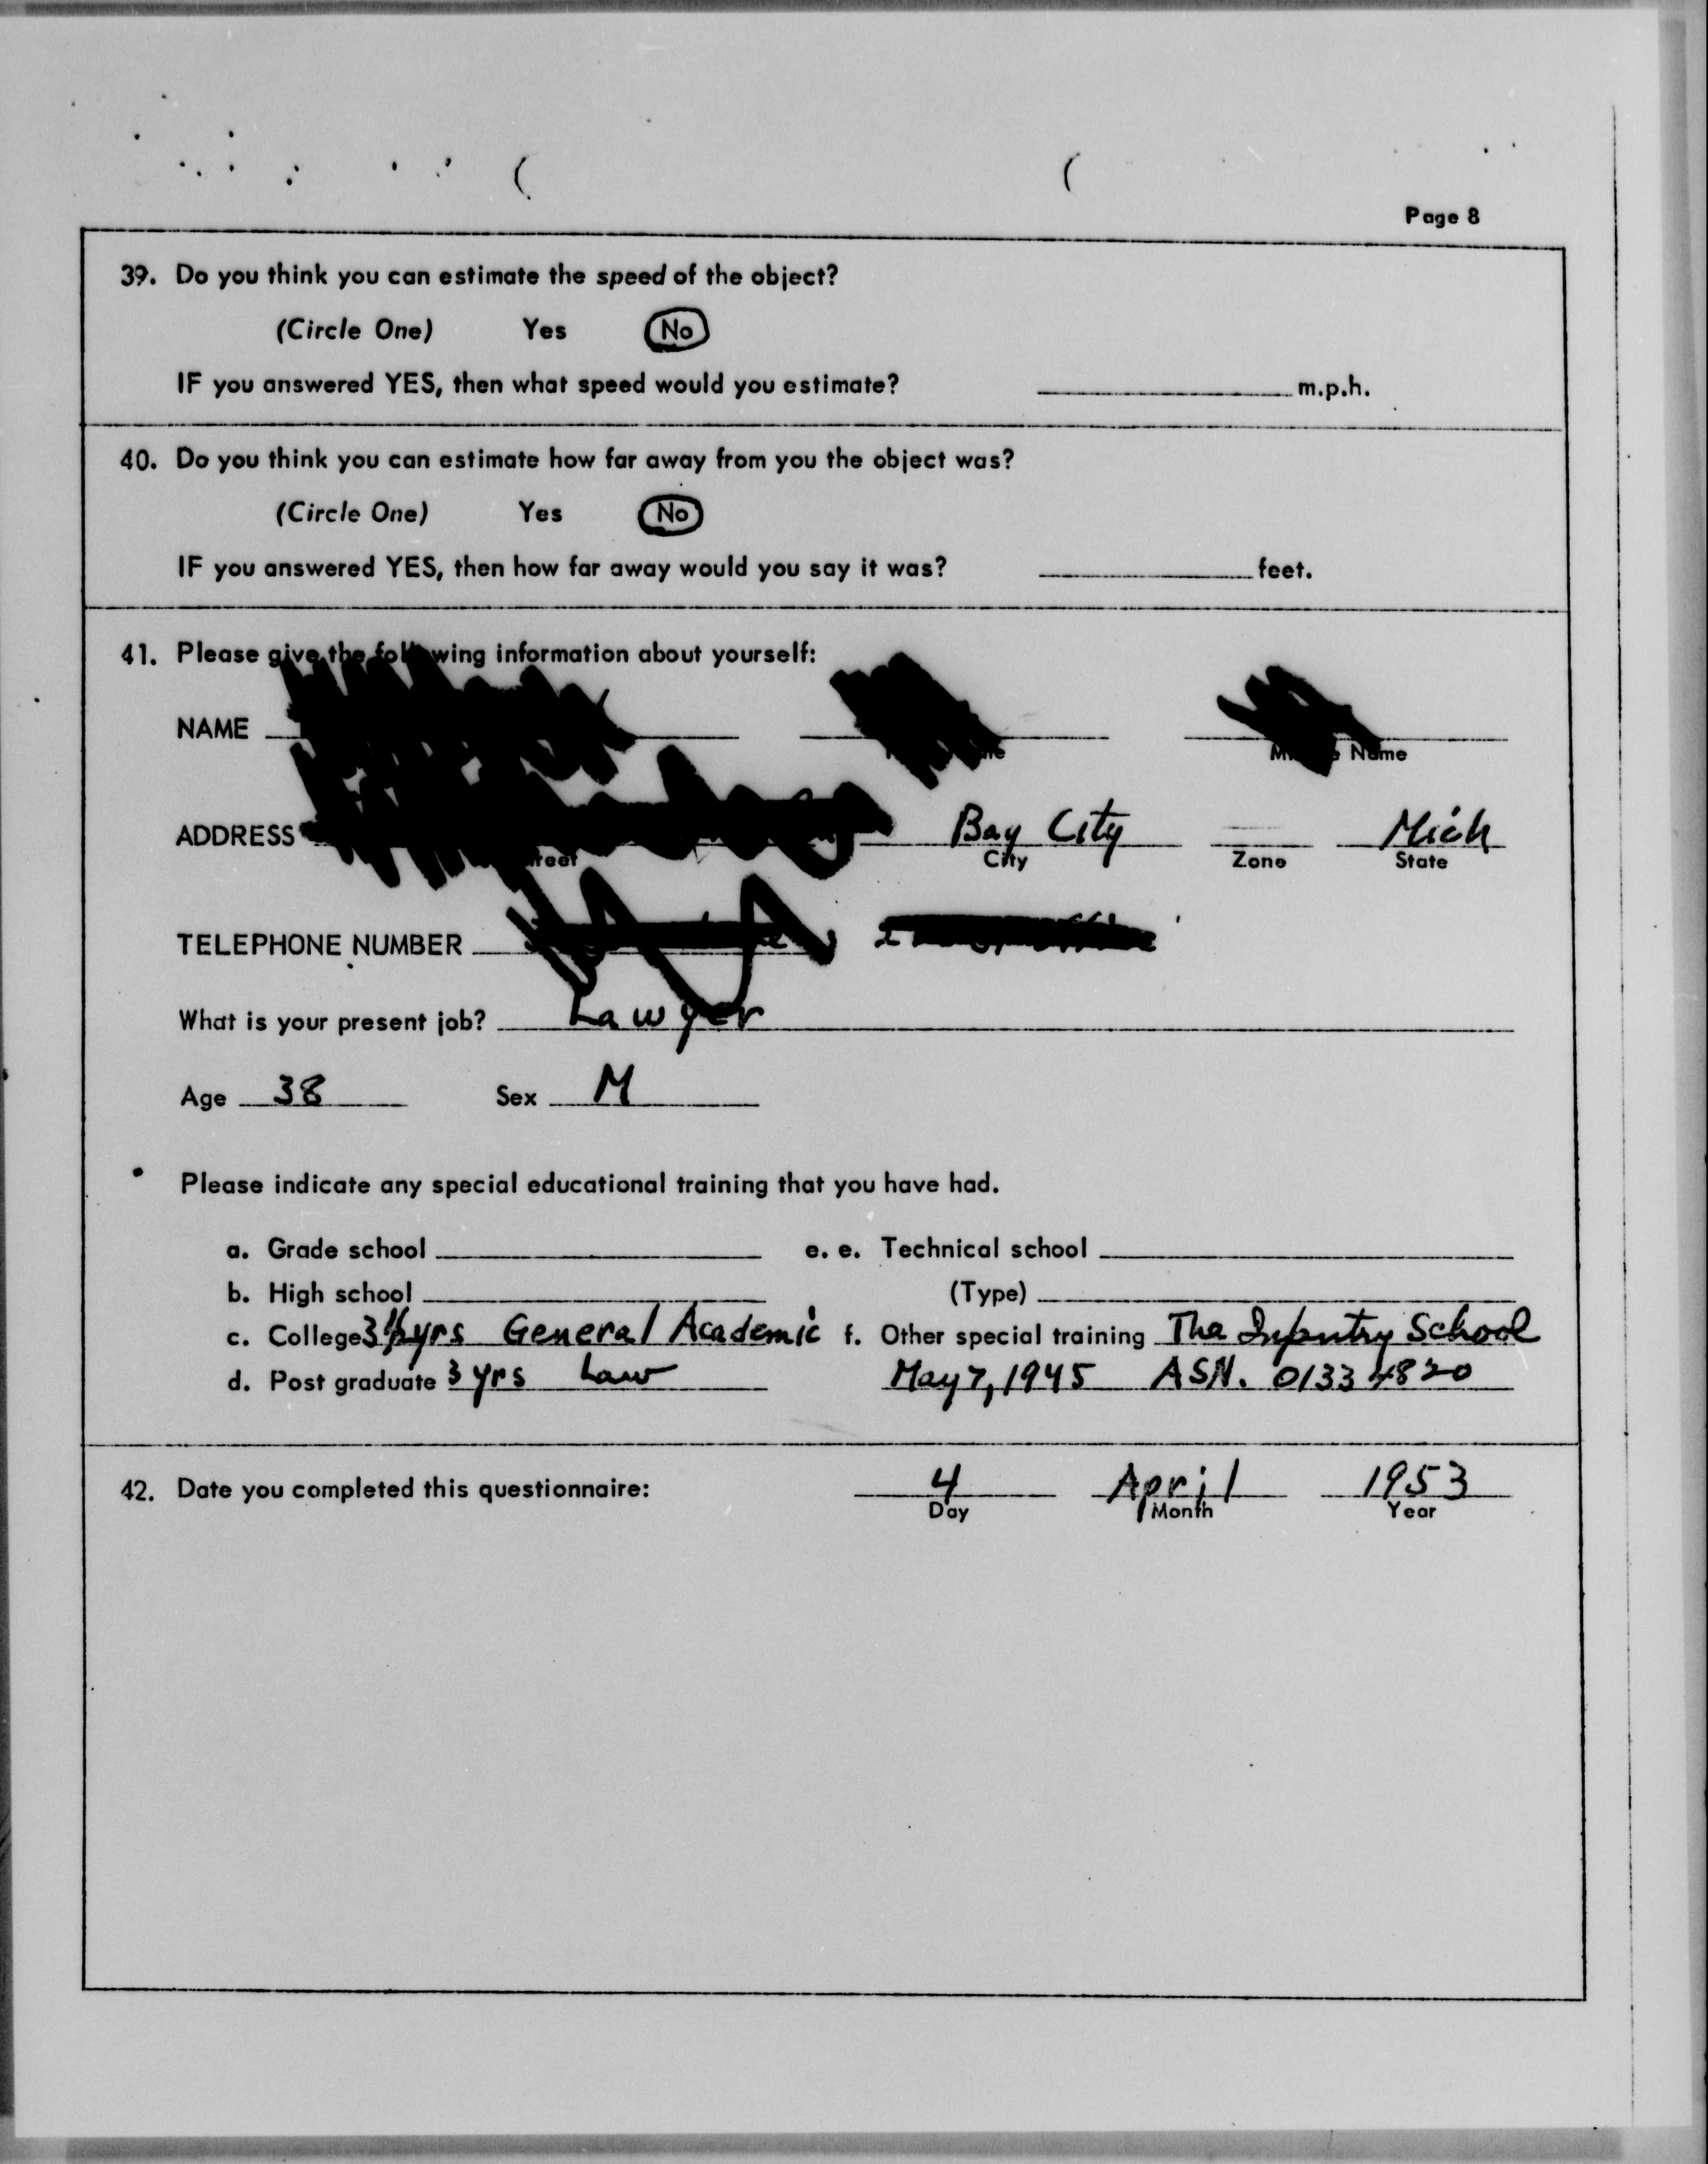 Page 8
39. Do you think you can estimate the speed of the object?
(Circle One) Yes No
IF you answered YES, then what speed would you estimate? m.p.h.
40. Do you think you can estimate how far away from you the object was?
(Circle One) Yes No
IF you answered YES, then how far away would you say it was? feet.
41. Please give the following information about yourself:
NAME
Name
ADDRESS Bay City Mich
City Zone State
TELEPHONE NUMBER
What is your present job? Lawyer
Age 38 Sex M
Please indicate any special educational training that you have had.
a. Grade school e. e. Technical school
b. High school (Type)
c. College 3½ yrs General Academic f. Other special training The Infantry School
d. Post graduate 3 yrs Law May 7, 1945 ASN. 01334820
42. Date you completed this questionnaire: 4 April 1953
Day Month Year